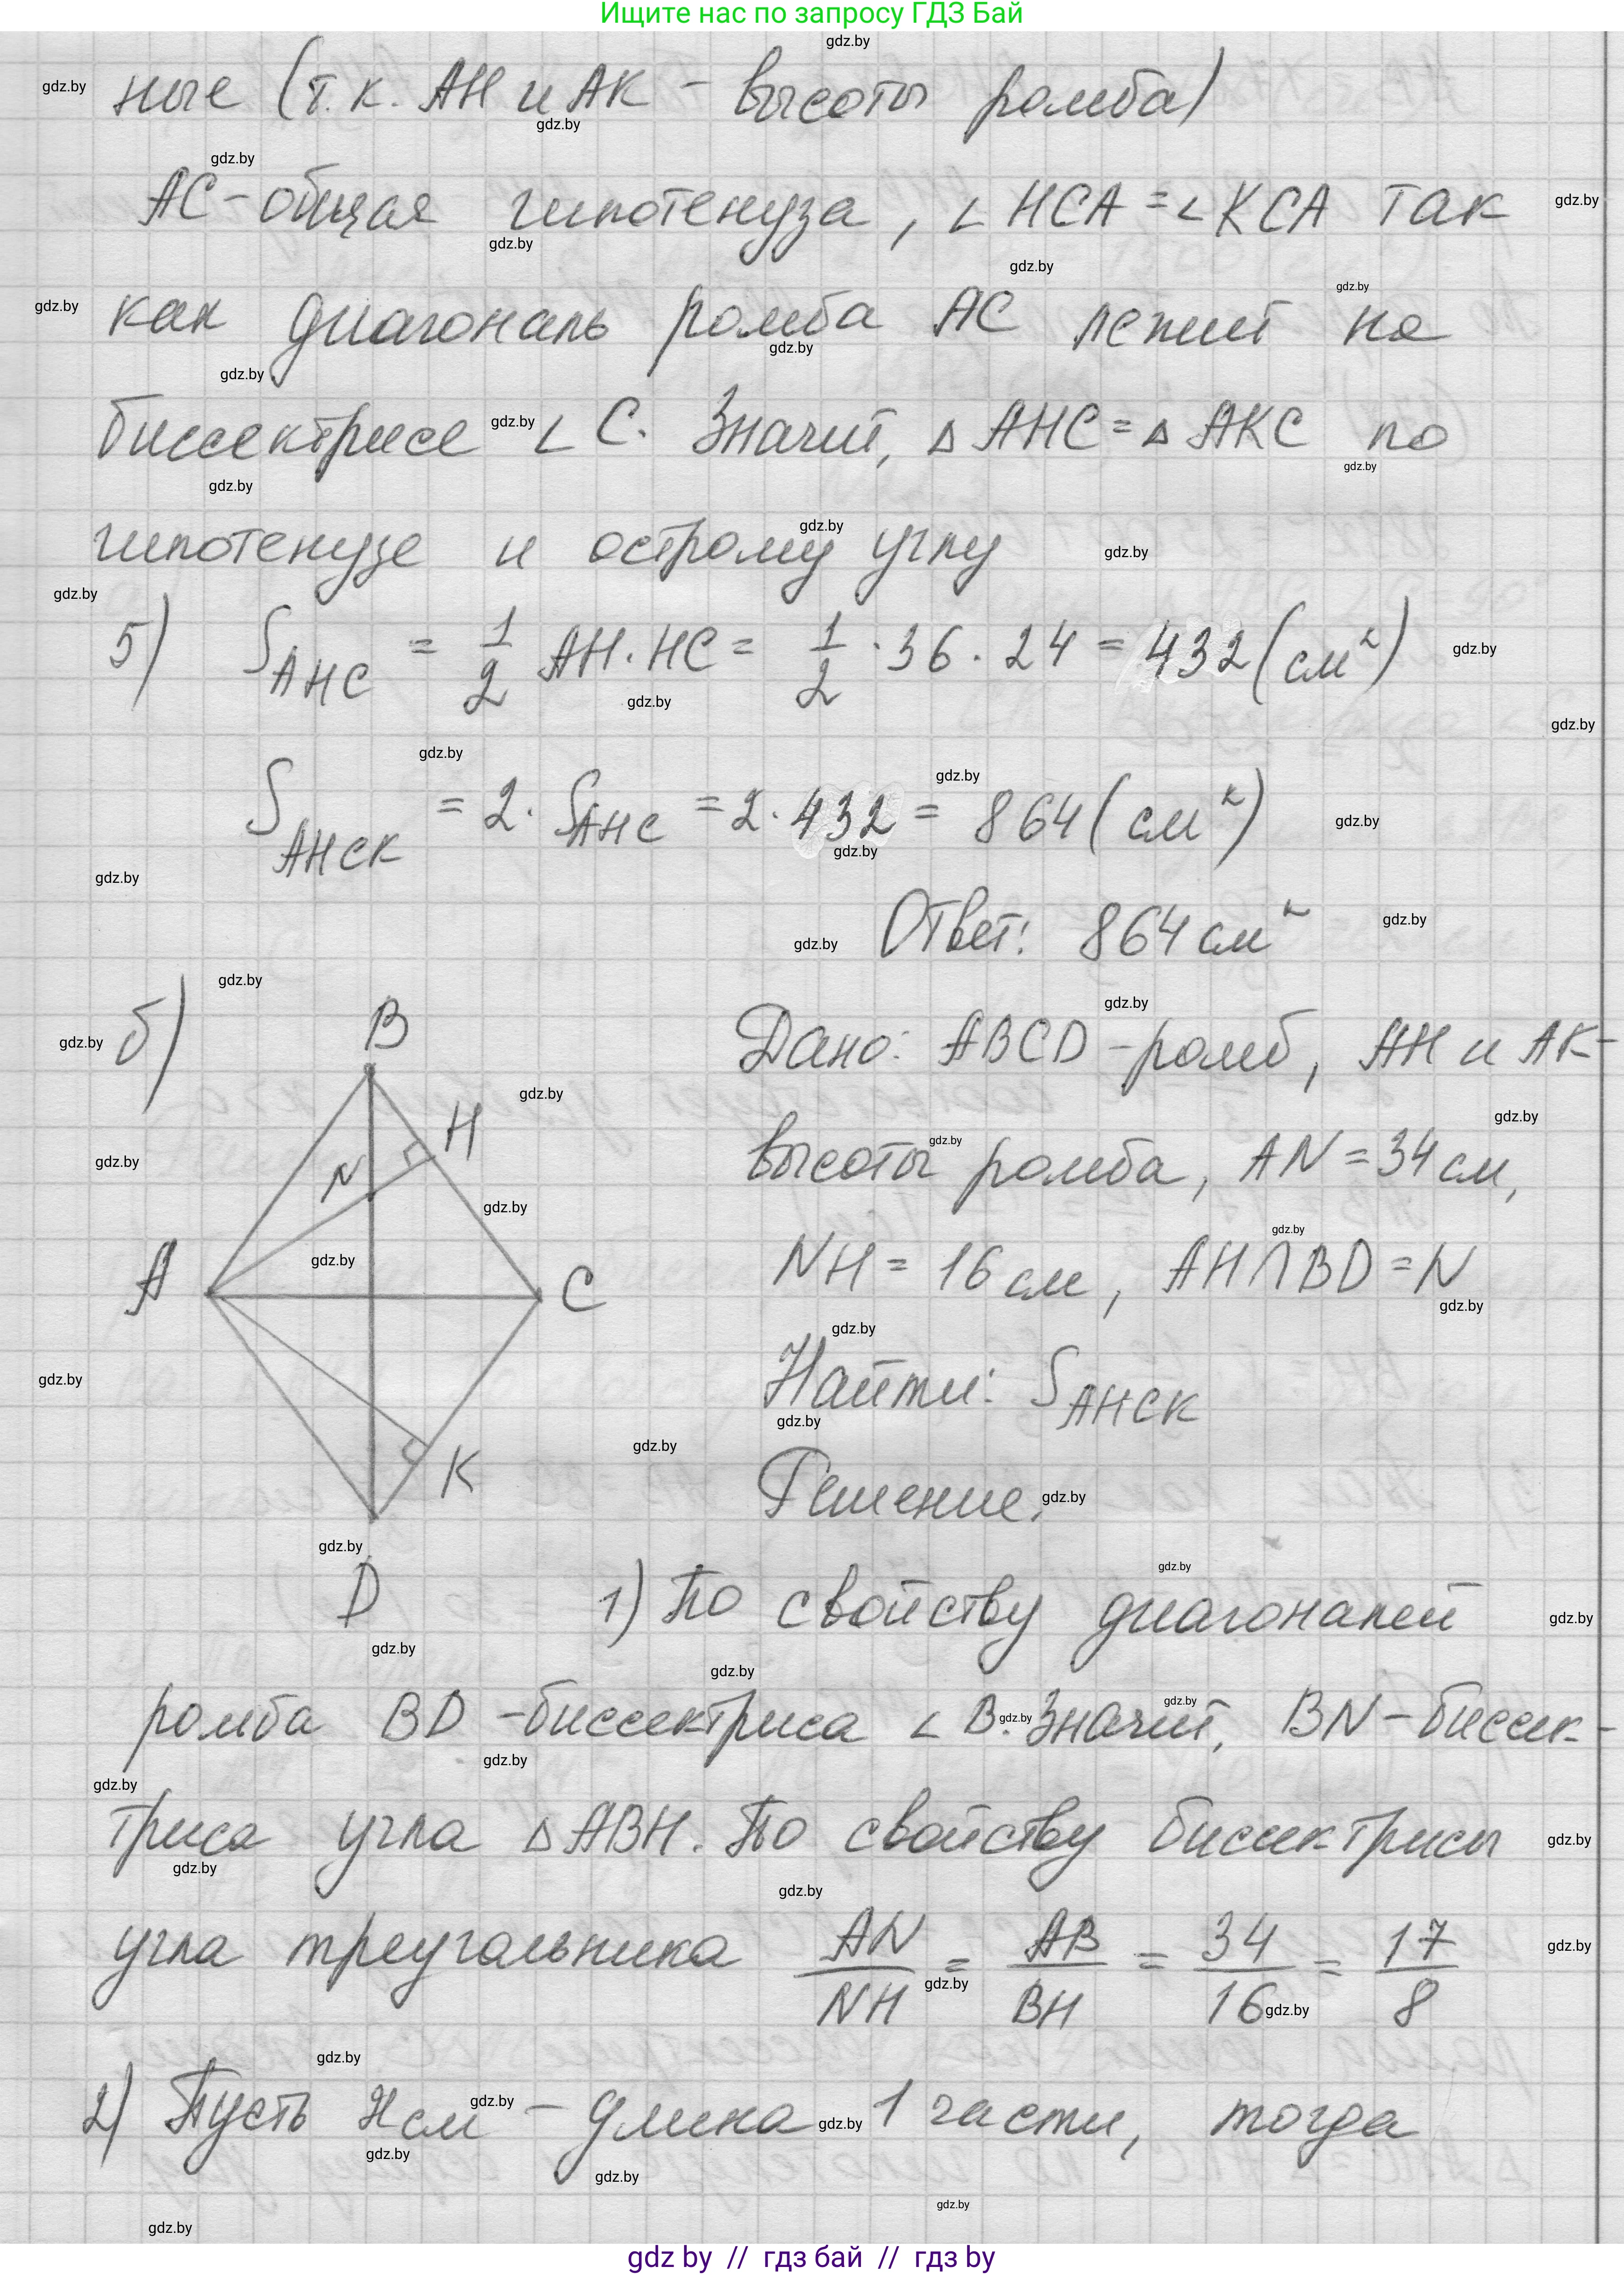 Ищите нас по запросу ГДЗ Бай
ные (т.к. AH и AK - высоты ромба)
AC - общая гипотенуза, ∠HCA = ∠KCA так
как диагональ ромба AC лежит на
биссектрисе ∠C. Значит, △AHC = △AKC по
гипотенузе и острому углу
5) S_AHC = 1/2 AH · HC = 1/2 · 36 · 24 = 432 (см²)
S_AHCK = 2 · S_AHC = 2 · 432 = 864 (см²)
Ответ: 864 см²
б)
B
H
N
A
C
K
D
Дано: ABCD - ромб, AH и AK -
высоты ромба, AN = 34 см,
NH = 16 см, AH ∩ BD = N
Найти: S_AHCK
Решение.
1) По свойству диагоналей
ромба BD - биссектриса ∠B. Значит, BN - биссек-
триса угла △ABH. По свойству биссектрисы
угла треугольника AN/NH = AB/BH = 34/16 = 17/8
2) Пусть x см - длина 1 части, тогда
gdz.by
gdz by // гдз бай // гдз by